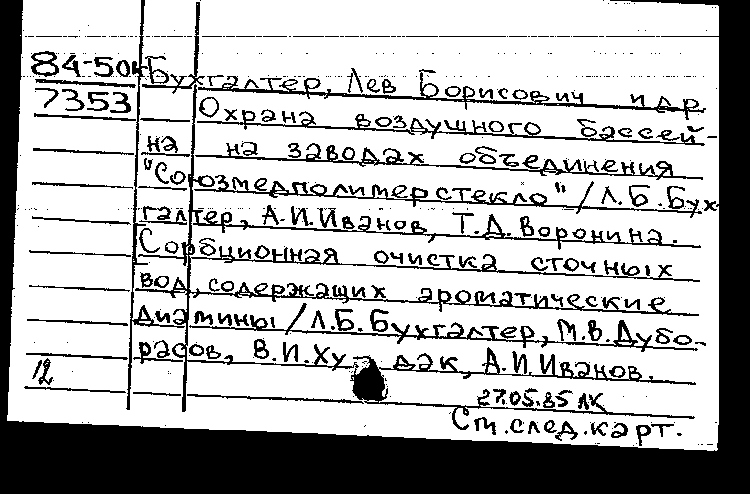 84-504 Бухгалтер, Лев Борисович и др
7353 Охрана воздушного бассей-
на на заводах объединения
"Союзмедполимерстекло" / Л.Б.Бух-
галтер, А.И.Иванов, Т.Д.Воронина.
Сорбционная очистка сточных
вод, содержащих ароматические
диамины / Л.Б.Бухгалтер, М.В.Дубо-
расов, В.И.Ху- дяк, А.И.Иванов.
12
27.05.85 ЛК
См.след.карт.